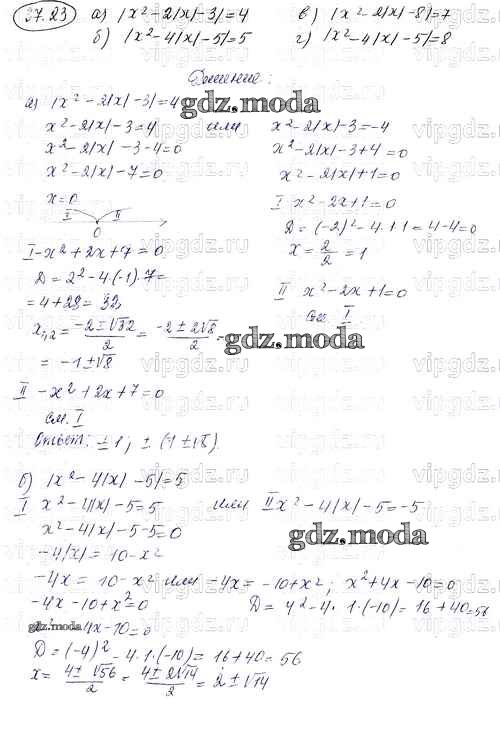 37.23 а) |x² - 2|x| - 3| = 4 в) |x² - 2|x| - 8| = 7
б) |x² - 4|x| - 5| = 5 г) |x² - 4|x| - 5| = 8
Решение:
а) |x² - 2|x| - 3| = 4
gdz.moda
x² - 2|x| - 3 = 4 или x² - 2|x| - 3 = -4
x² - 2|x| - 3 - 4 = 0 x² - 2|x| - 3 + 4 = 0
x² - 2|x| - 7 = 0 x² - 2|x| + 1 = 0
x = 0 I x² - 2x + 1 = 0
I II D = (-2)² - 4·1·1 = 4 - 4 = 0
0 x = 2/2 = 1
I -x² + 2x + 7 = 0
D = 2² - 4·(-1)·7 = II x² - 2x + 1 = 0
= 4 + 28 = 32 см. I
x₁,₂ = (-2 ± √32)/2 = (-2 ± 2√8)/2 =
gdz.moda
= -1 ± √8
II -x² + 2x + 7 = 0
см. I
Ответ: ± 1; ± (1 ± √8).
б) |x² - 4|x| - 5| = 5
I x² - 4|x| - 5 = 5 или II x² - 4|x| - 5 = -5
x² - 4|x| - 5 - 5 = 0
gdz.moda
-4|x| = 10 - x²
-4x = 10 - x² или -4x = -10 + x²; x² + 4x - 10 = 0
-4x - 10 + x² = 0 D = 4² - 4·1·(-10) = 16 + 40 = 56
gdz.moda
4x - 10 = 0
D = (-4)² - 4·1·(-10) = 16 + 40 = 56
x = (4 ± √56)/2 = (4 ± 2√14)/2 = 2 ± √14
vipgdz.ru